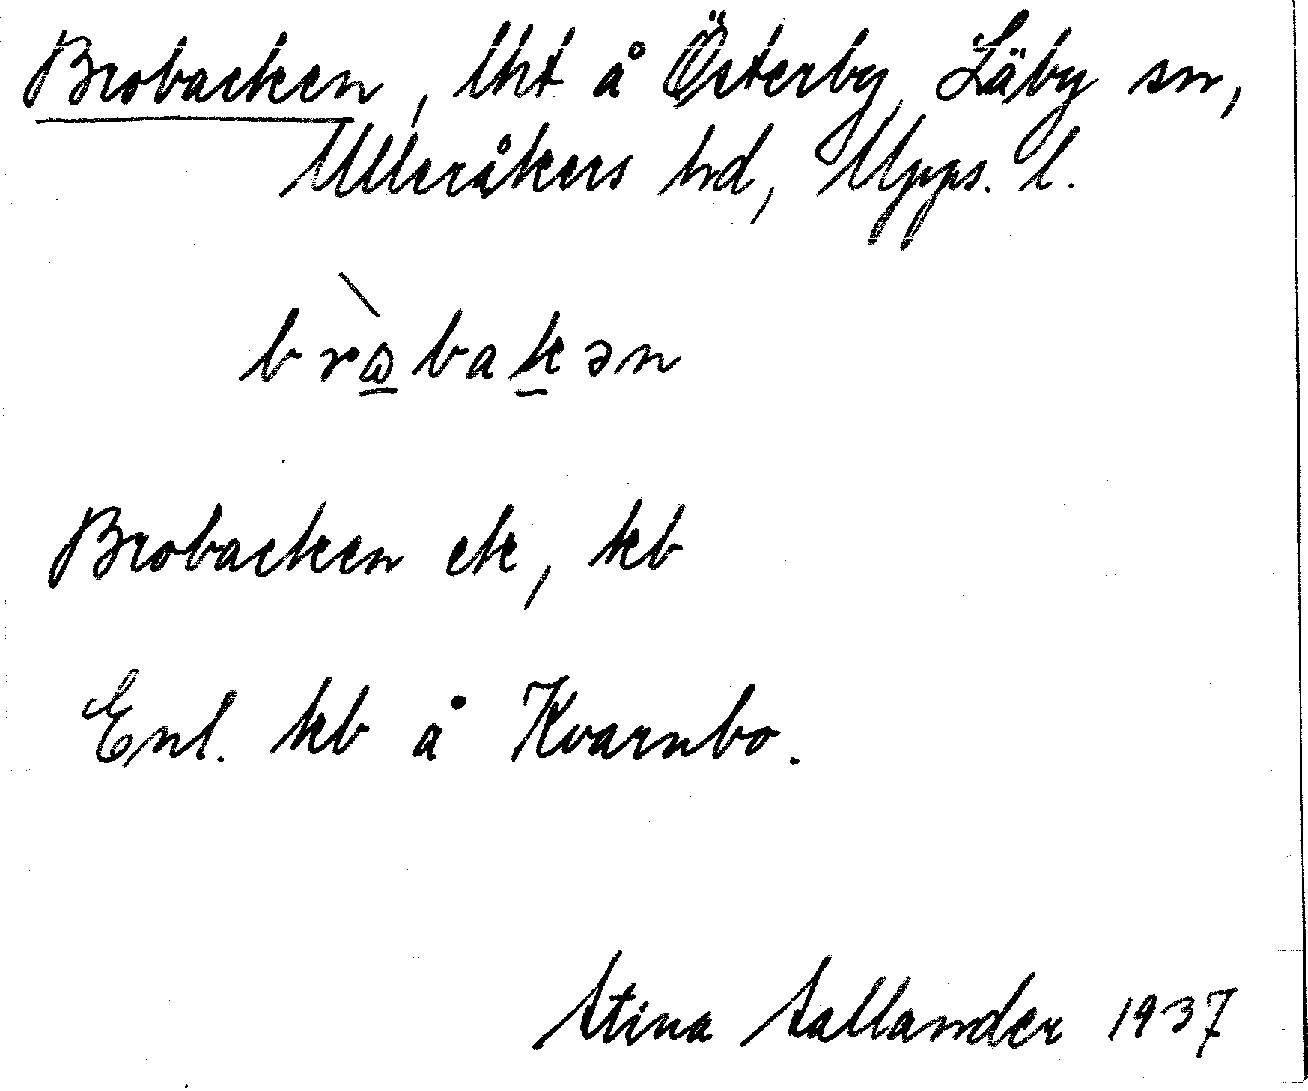 Brobacken, lht å Österby, Läby sn,
Ulleråkers hd, Upps. l.
brὼbakən
Brobacken ek, kb
Enl. kb å Kvarnbo.
Stina Sallander 1937